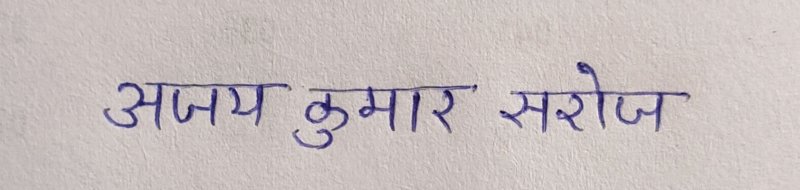 अजय कुमार सरोज